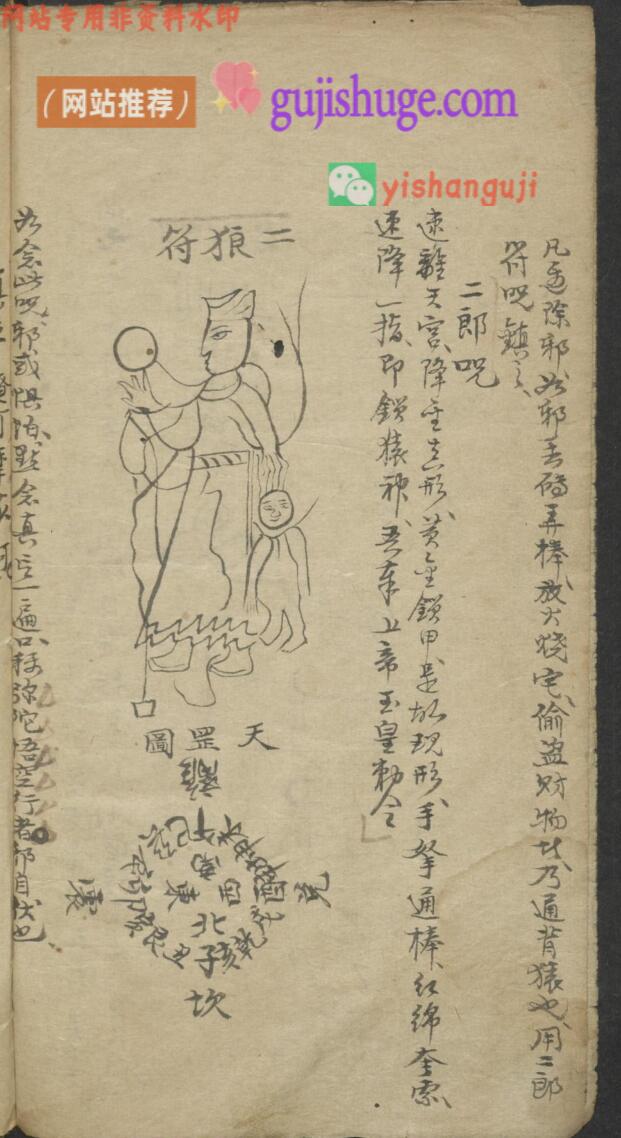 网站专用非资料水印
（网站推荐） gujishuge.com
yishanguji
凡送除邪、如邪丢磚弄棒、放火燒宅、偷盜財物、此乃通背猿也、用二郎
符呪鎮之、
二郎呪
速離天宮、降至真形、黃金鎖甲、是故現形、手拏通棒、紅綿套索、
速降一指、即鎖猿神、吾奉上帝玉皇勅令
二狼符
天罡圖
離
午
南
東 西
北
子
坎
震
如念此呪、邪或惧怕、默念真言一遍、口称弥陀悟空行者、邪自伏也、